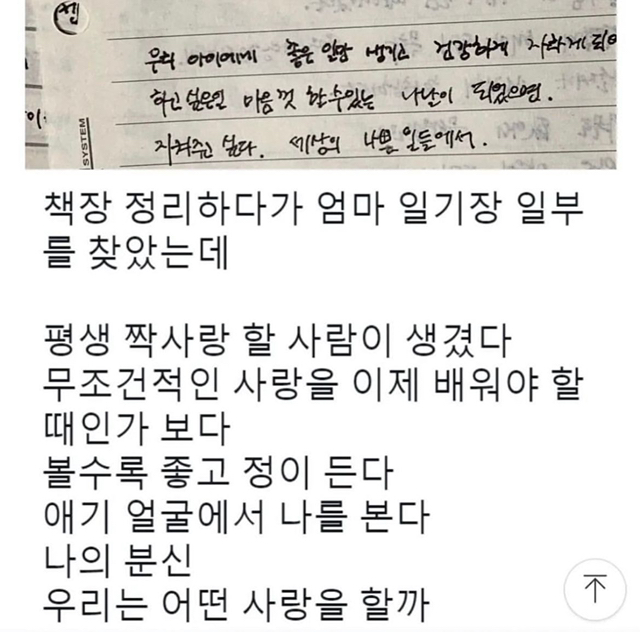 우리 아이에게 좋은 일만 생기고 건강하게
하고싶은일 마음껏 할수있는 나날이 되었으면.
지켜주고 싶다. 세상의 나쁜 일들에서.
SYSTEM
책장 정리하다가 엄마 일기장 일부
를 찾았는데
평생 짝사랑 할 사람이 생겼다
무조건적인 사랑을 이제 배워야 할
때인가 보다
볼수록 좋고 정이 든다
애기 얼굴에서 나를 본다
나의 분신
우리는 어떤 사랑을 할까